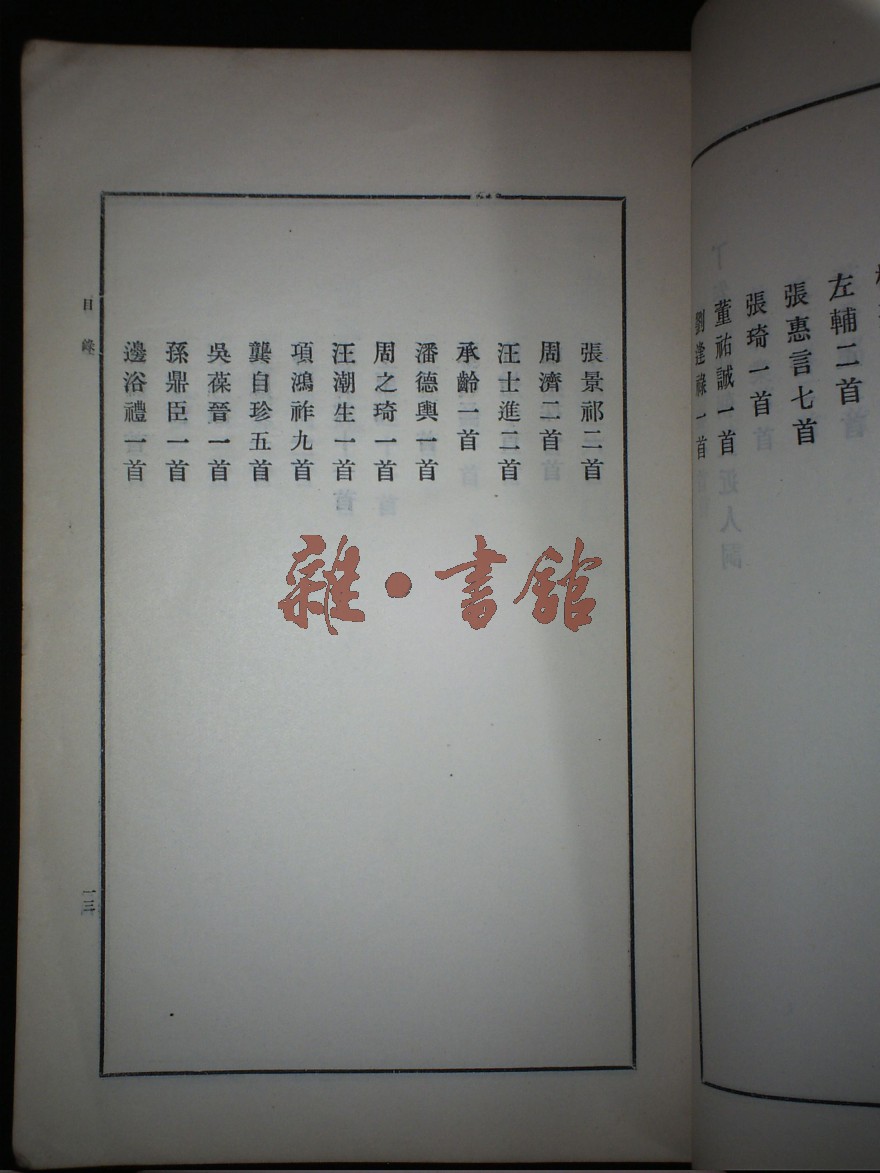 左輔二首
張惠言七首
張琦一首
董祐誠一首
劉逢祿一首
張景祁二首
周濟二首
汪士進二首
承齡一首
潘德輿一首
周之琦一首
汪潮生一首
項鴻祚九首
龔自珍五首
吳葆晉一首
孫鼎臣一首
邊浴禮一首
目錄
一三
雜·書館